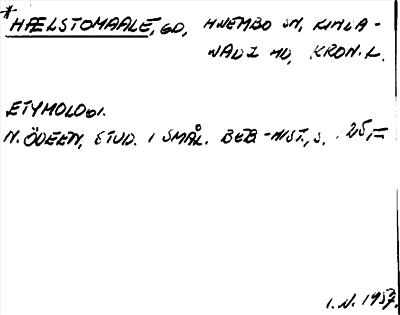 * HÆLSTOMAALE, GD, HJEMBO SN, KINLA-
WALDZ HD, KRON. L.
ETYMOLOGI.
N. ÖDEEN, STUD. I SMÅL. BEB-HIST., S. 25,=
I. N. 1957.